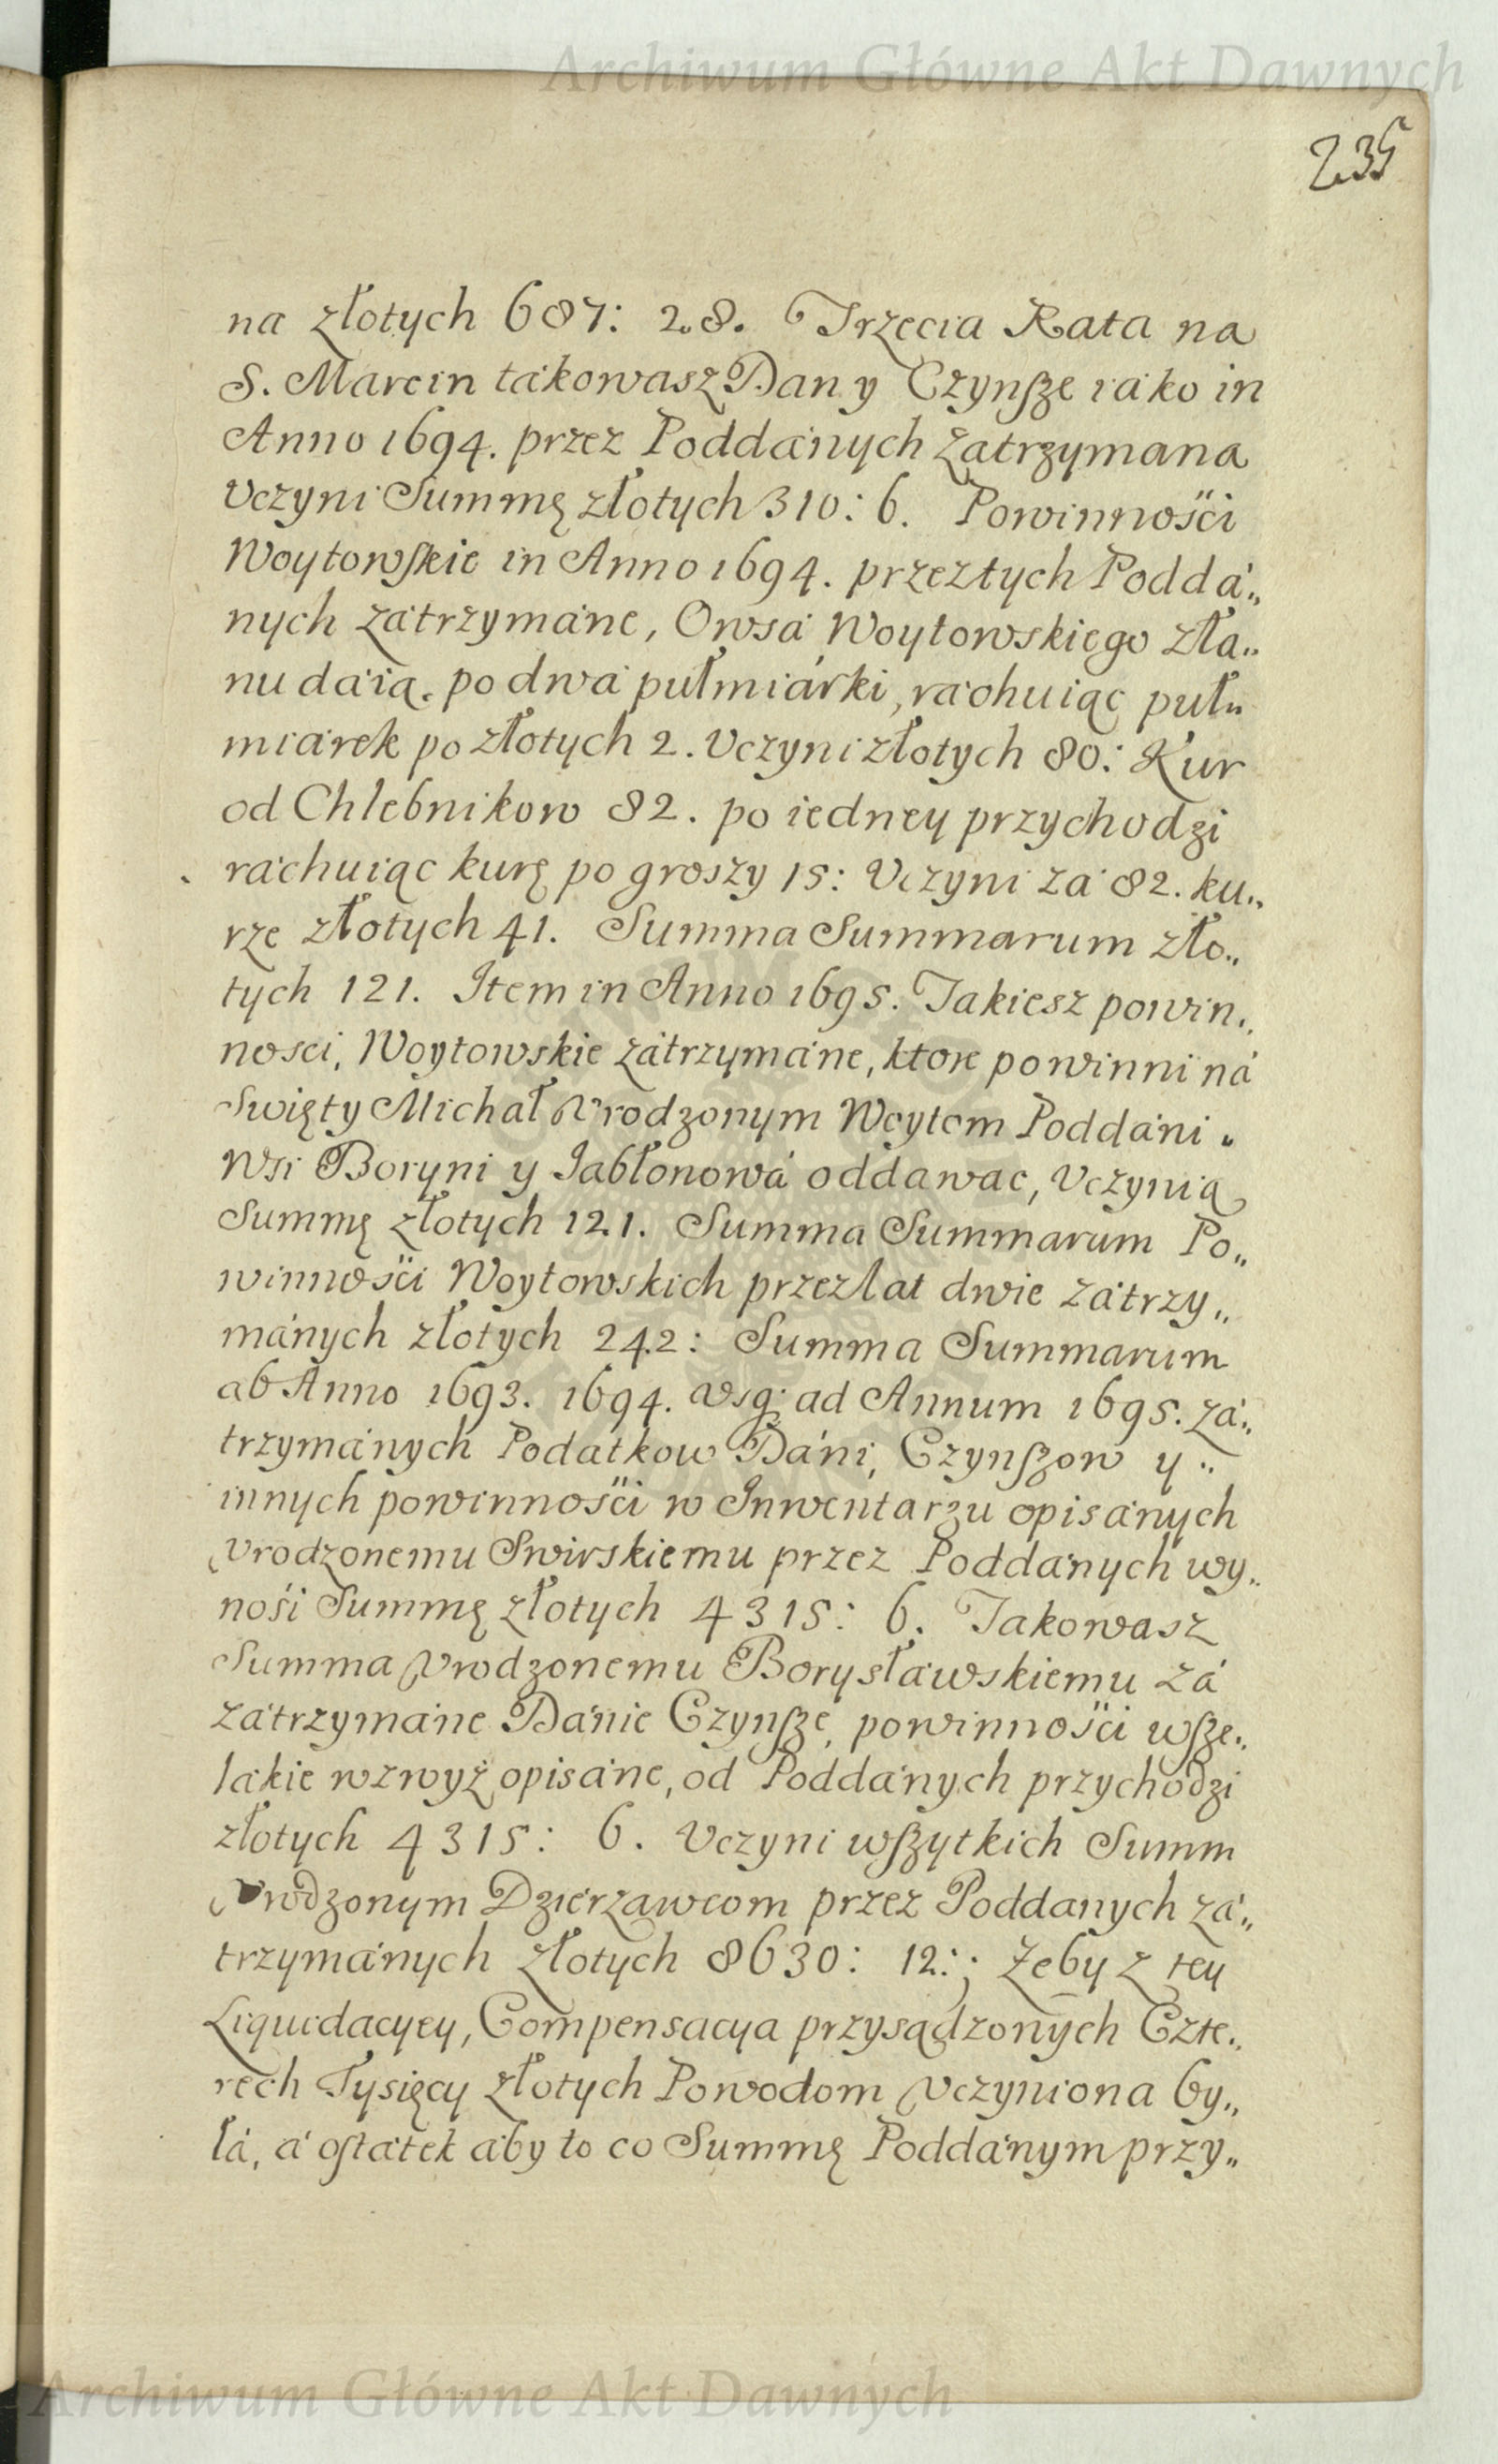 Archiwum Główne Akt Dawnych
235
na złotych 687: 28. Trzecia Rata na
S. Marcin tákowasz Dan y Czynsze iáko in
Anno 1694. przez Poddánych zatrzymana
Vczyni Summę złotych 310: 6. Powinnośći
Woytowskie in Anno 1694. przez tych Poddá„
nych zátrzymáne, Owsá Woytowskiego z ła„
nu dáią. po dwá pułmiárki, ráchuiąc puł„
miarek po złotych 2. Vczyni złotych 80: Kur
od Chlebnikow 82. po iedney przychodzi
ráchuiąc kurę po groszy 15: Vczyni zá 82. ku„
rze złotych 41. Summa Summarum zło„
tych 121. Item in Anno 1695. Takiesz powin„
nosci, Woytowskie zátrzymáne, ktore powinni ná
Swięty Michał Vrodzonym Woytom Poddáni „
Wsi Boryni y Jabłonowá oddawac, Vczynią
Summę złotych 121. Summa Summarum Po„
winnośći Woytowskich przez lat dwie zátrzy„
mánych złotych 242: Summa Summarum
ab Anno 1693. 1694. Vsq; ad Annum 1695. zá„
trzymánych Podatkow Dáni, Czynszow y „
innych powinnośći w Inwentarzu opisánych
Vrodzonemu Swirskiemu przez Poddánych wy„
nośi Summę złotych 4315: 6. Takowasz
Summa Vrodzonemu Borysławskiemu zá
zátrzymáne Dánie Czynsze, powinnośći wsze„
lakie wzwyż opisáne, od Poddánych przychodzi
złotych 4315: 6. Vczyni wszytkich Summ
Vrodzonym Dzierzawcom przez Poddanych zá„
trzymánych złotych 8630: 12:; Zeby z tey
Liquidacyey, Compensacya przysądzonych Czte„
rech Tysięcy złotych Powodom Vczyniona by„
łá, á ostátek áby to co Summę Poddánym przy„
Archiwum Główne Akt Dawnych